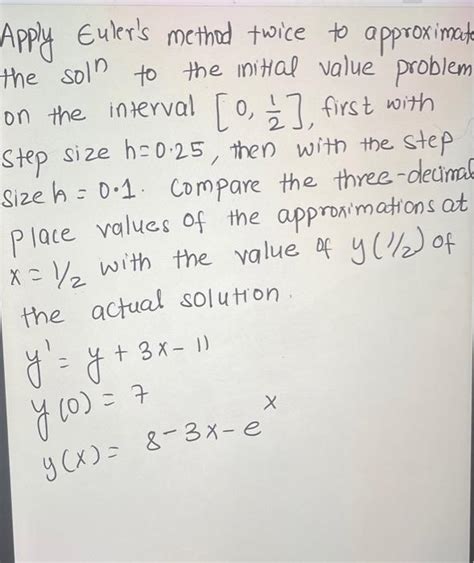 Apply Euler's method twice to approximate
the solⁿ to the initial value problem
on the interval [0, 1/2], first with
step size h=0.25, then with the step
size h = 0.1. Compare the three-decimal
place values of the approximations at
x = 1/2 with the value of y(1/2) of
the actual solution.
y' = y + 3x - 11
y(0) = 7
y(x) = 8-3x-eˣ